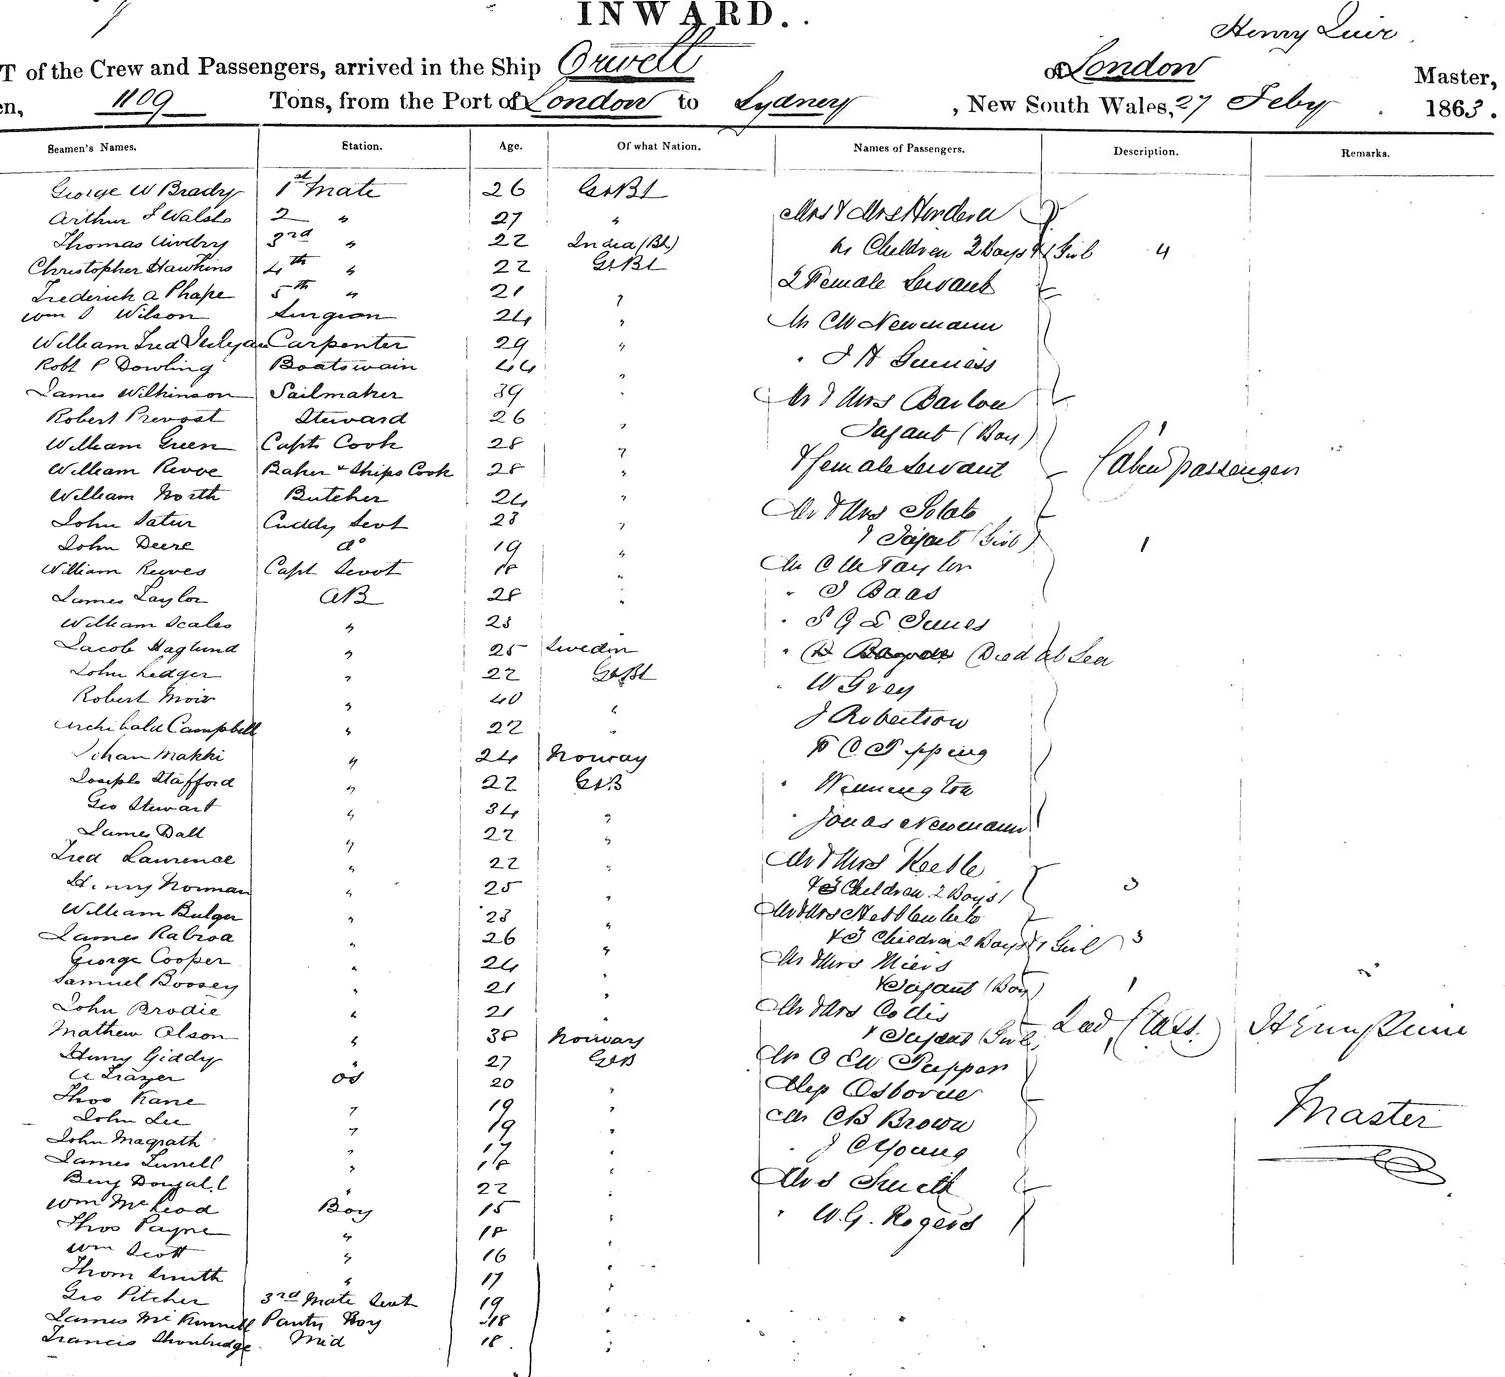 INWARD.
Henry
T of the Crew and Passengers, arrived in the Ship Orwell of London Master,
en, 1109 Tons, from the Port of London to Sydney, New South Wales, 27 Feby 1863.
Seamen's Names. Station. Age. Of what Nation. Names of Passengers. Description. Remarks.
George W Brady 1st Mate 26 Gt Bt
Arthur J Walsh 2 " 27 "
Mr & Mrs Hordern
Thomas 3rd " 22 India (Bt)
Children 2 Boys & 1 Girl 4
Christopher Hawkins 4th " 22 Gt Bt
2 Female Servants
Frederick A Phape 5th " 21 "
Wm Wilson Surgeon 24 "
Mr CW Newmann
William Fred Carpenter 29 "
" J H Guiness
Robt P Dowling Boatswain 44 "
James Wilkinson Sailmaker 39 "
Mr & Mrs Barlow
Robert Prevost Steward 26 "
Infant (Boy) 1
William Green Capts Cook 28 "
William Baker & Ships Cook 28 "
& female servant Cabin passengers
William North Butcher 24 "
Mr & Mrs
John Cuddy Servt 23 "
& Infant (Girl) 1
John Deere do 19 "
William Reeves Capt Servt 18 "
Mr C W Taylor
James Taylor AB 28 "
" J Baas
William Scales " 23
" S G L Innes
Jacob Haglund " 25 Sweden
" Died at Sea
John Ledger " 22 Gt Bt
" W Grey
Robert Moir " 40 "
J Robertson
Archibald Campbell " 22 "
Makki " 24 Norway
C Tipping
Joseph Stafford " 22 Gt B
" Winnington
Geo Stewart " 34 "
" Jonas Newmann
James Dall " 22 "
Fred Lawrence " 22 "
Mr & Mrs Keeble
Henry Norman " 25 "
& 3 Children 2 Boys 1 3
William Bulger " 23 "
Mr & Mrs
James " 26 "
& 3 Children 2 Boys & 1 Girl 3
George Cooper " 24 "
Mr & Mrs Miers
Samuel Boosey " 21 "
& Infant (Boy) 1
John Brodie " 21 "
Mr & Mrs Collis
Mathew Olson " 38 Norway
& Infant (Girl) 2nd Class.
Henry Giddy " 27 Gt B
Mr C EW Pepper
A Frazer OS 20 "
Alex Osborne
Thos Kane " 19 "
Mr CB Brown Master
John Lee " 19 "
John Magrath " 17 "
" J C Young
James Turrell " 18 "
Mrs Smith
Benj Dougall " 22 "
Wm McLeod Boy 15 "
" W.G. Rogers
Thos Payne " 18 "
Wm Scott " 16 "
Thom Smith " 17 "
Geo Pitcher 3rd Mate Servt 19 "
James Pantry Boy 18 "
Francis Mid 18 "